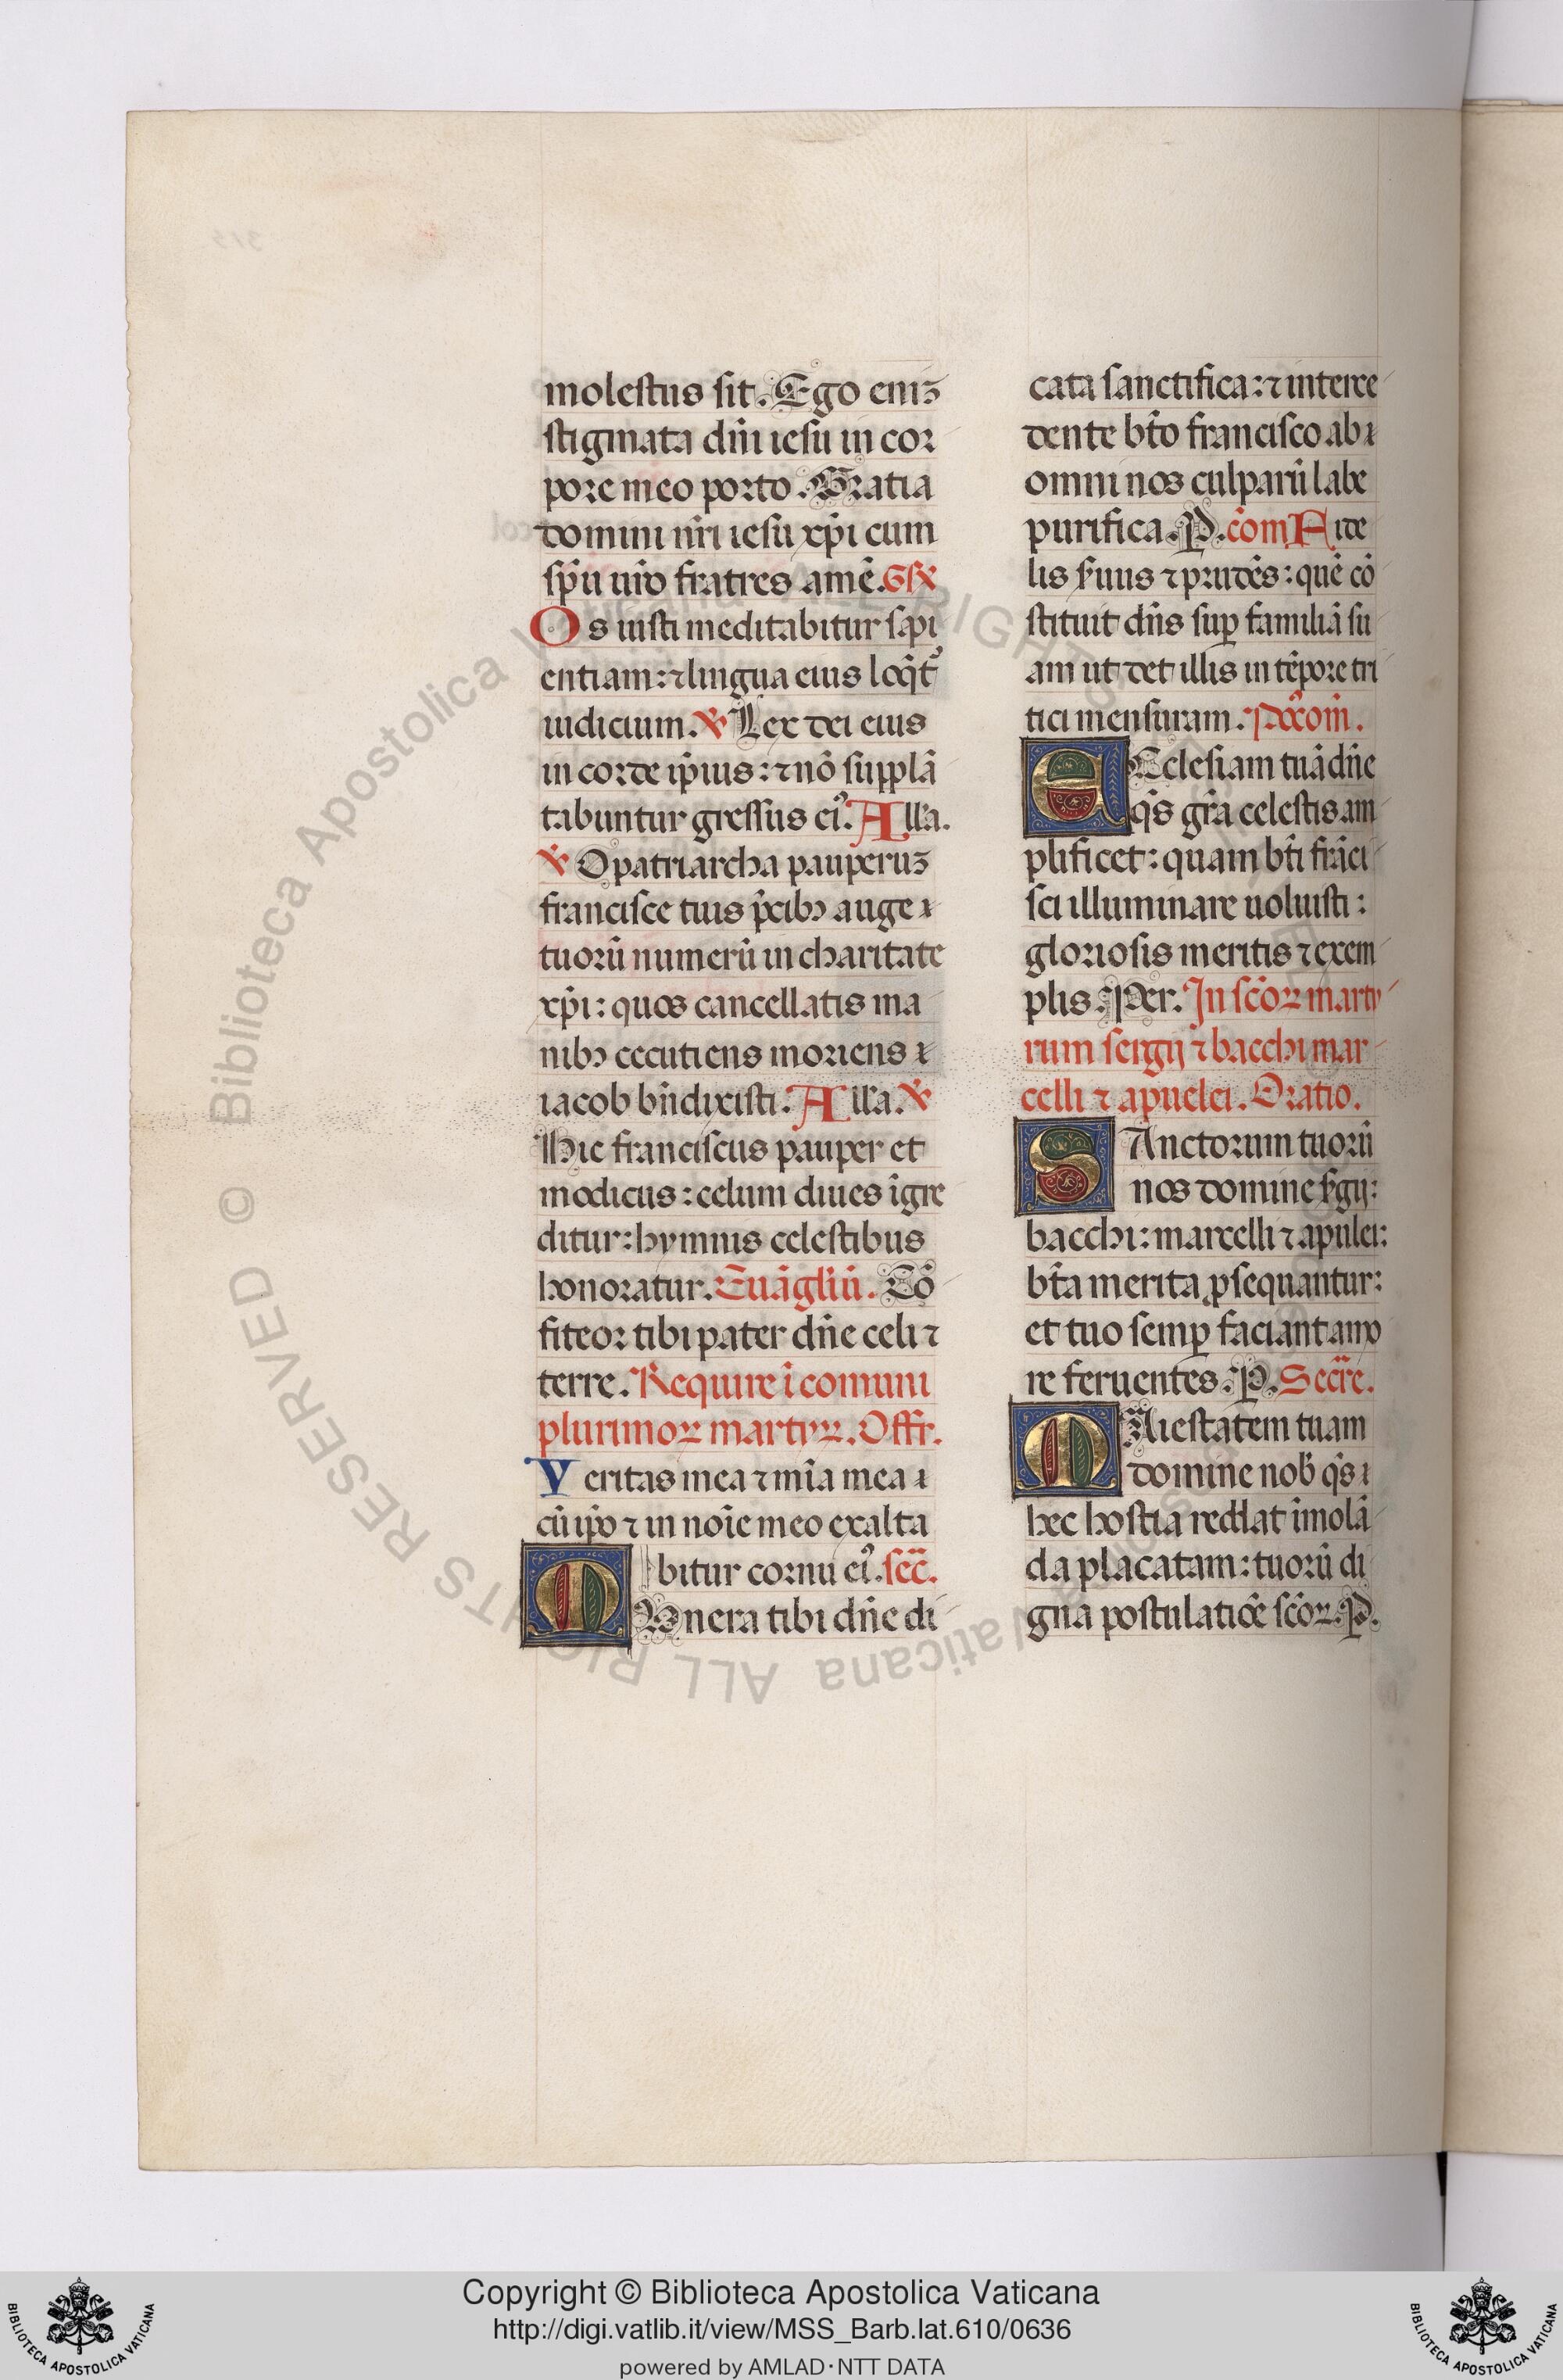 molestus sit. Ego eniʒ
stigmata dñi iesu in cor
pore meo porto. Gratia
domini nr̃i iesu xp̃i cum
sp̃u ur̃o fratres amẽ. GR̃
Os iusti meditabitur sapi
entiam: ⁊ lingua eius loq̃t᷑
iudicium. ℣ Lex dei eius
in corde ip̃ius: ⁊ nõ supplã
tabuntur gressus ei᷒. All'a.
℣ O patriarcha pauperuʒ
francisce tuis p̃cibꝫ auge
tuorũ numerũ in charitate
xp̃i: quos cancellatis ma
nibꝫ cecutiens moriens
iacob bñdixisti. All'a. ℣
Hic franciscus pauper et
modicus: celum diues ĩgre
ditur: hymnus celestibus
honoratur. Euãgliũ. Cõ
fiteor tibi pater dñe celi ⁊
terre. Require ĩ comuni
plurimoꝝ martyꝝ. Offr.
Veritas mea ⁊ mĩa mea
cũ ip̃o ⁊ in noĩe meo exalta
bitur cornu ei᷒. secc̃.
MUnera tibi dñe di
cata sanctifica: ⁊ interce
dente bt̃o francisco ab
omni nos culparũ labe
purifica. P. com̃ Fide
lis s̃uus ⁊ prudẽs: quẽ cõ
stituit dñs suꝑ familiã su
am ut det illis in tẽpore tri
tici mensuram. P̃xcom̃.
ECclesiam tuã dñe
q̃s gr̃a celestis am
plificet: quam bt̃i frãci
sci illuminare uoluisti:
gloriosis meritis ⁊ exem
plis. Per. In sc̃oꝝ marty
rum sergij ⁊ bacchi mar
celli ⁊ apuelei. Oratio.
SAnctorum tuorũ
nos domine s̃gij:
bacchi: marcelli ⁊ apulei:
bt̃a merita ꝓsequantur:
et tuo semꝑ faciant amo
re feruentes. P. Secr̃e.
MAiestatem tuam
domine nob̃ q̃s
hec hostia reddat ĩmolã
da placatam: tuorũ di
gna postulatiõe sc̃oꝝ. P.
© Biblioteca Apostolica Vaticana ALL RIGHTS RESERVED
Copyright © Biblioteca Apostolica Vaticana
http://digi.vatlib.it/view/MSS_Barb.lat.610/0636
powered by AMLAD·NTT DATA
BIBLIOTECA APOSTOLICA VATICANA
BIBLIOTECA APOSTOLICA VATICANA